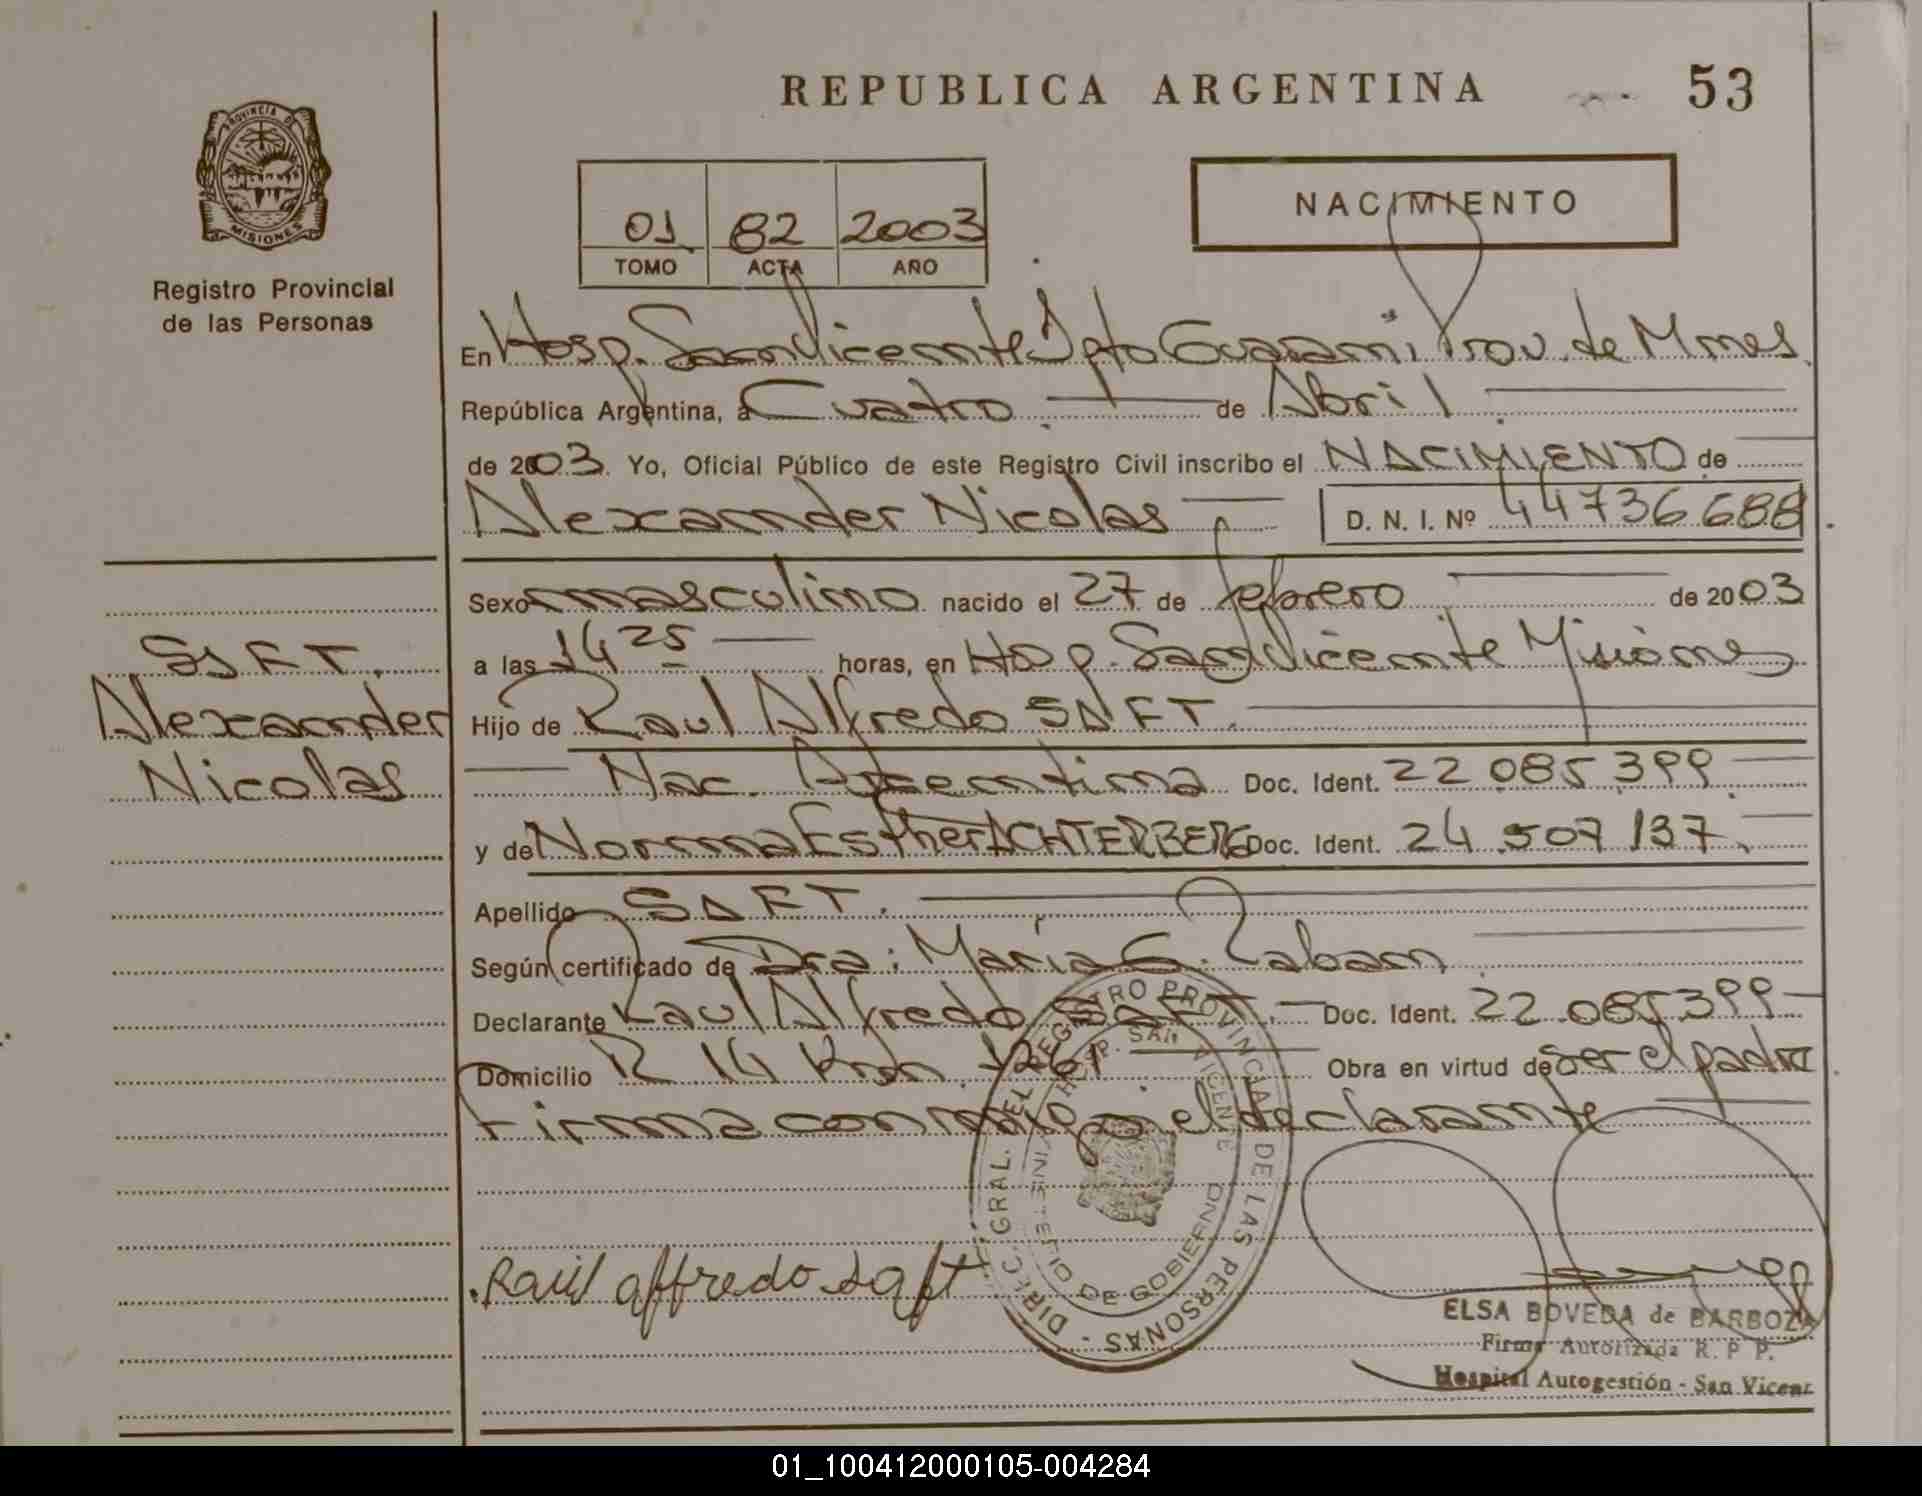 REPUBLICA ARGENTINA 53
PROVINCIA DE MISIONES
Registro Provincial
de las Personas
01 82 2003
TOMO ACTA AÑO
NACIMIENTO
En Hosp. San Vicente Dpto Guarani Prov. de Mnes
República Argentina, a Cuatro de Abril
de 2003. Yo, Oficial Público de este Registro Civil inscribo el NACIMIENTO de
Alexander Nicolas D. N. I. Nº 44736688
Sexo masculino nacido el 27 de febrero de 2003
a las 14 25 horas, en Hosp. San Vicente Misiones
Hijo de Raul Alfredo SAFT.
Nac. Argentina Doc. Ident. 22 085 399
y de Norma Esther ACHTERBERG Doc. Ident. 24.507 137.
Apellido SAFT.
Según certificado de Dra: María G. Laban
Declarante Raul Alfredo SAFT. Doc. Ident. 22.085.399
Domicilio R 14 Km. 1261 Obra en virtud de Ser el padre
Firma conmigo el declarante
SAFT.
Alexander
Nicolas
DIREC. GRAL. DEL REGISTRO PROVINCIAL DE LAS PERSONAS -
HOSP. SAN VICENTE
MINISTERIO DE GOBIERNO
Raúl alfredo Saft
ELSA BOVEDA de BARBOZA
Firma Autorizada R. P P.
Hospital Autogestión - San Vicent
01_100412000105-004284